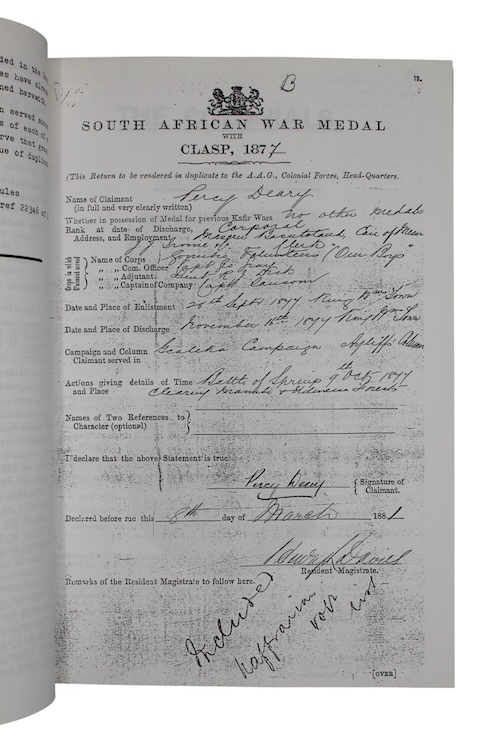 ded in the
es have alrea
ned herewith
n served above
s of each of
rve that gre
ue of duplic
ules
ref 22346 of
B
15.
SOUTH AFRICAN WAR MEDAL
WITH
CLASP, 1877
(This Return to be rendered in duplicate to the A.A.G., Colonial Forces, Head-Quarters.
Name of Claimant Percy Deary
(in full and very clearly written)
Whether in possession of Medal for previous Kafir Wars no other medals
Rank at date of Discharge, Corporal
Address, and Employment Basutoland, Care of
Clerk
Corps, in which Claimant served
Name of Corps Volunteers "Our Boys"
„ „ Com. Officer Capt
„ „ Adjutant Lieut
„ „ Captain of Company Capt Sansom
Date and Place of Enlistment 28th Septr 1877 King Wm Town
Date and Place of Discharge November 1877 King Wm Town
Campaign and Column Gcaleka Campaign Ayliff's Column
Claimant served in
Actions giving details of Time Battle of 9th Octr 1877
and Place Clearing Forests
Names of Two References to
Character (optional)
I declare that the above Statement is true.
Percy Deary Signature of
Claimant.
Declared before me this 8th day of March 1881
Resident Magistrate.
Remarks of the Resident Magistrate to follow here.
Included
Kaffrarian
Vol
list
[OVER